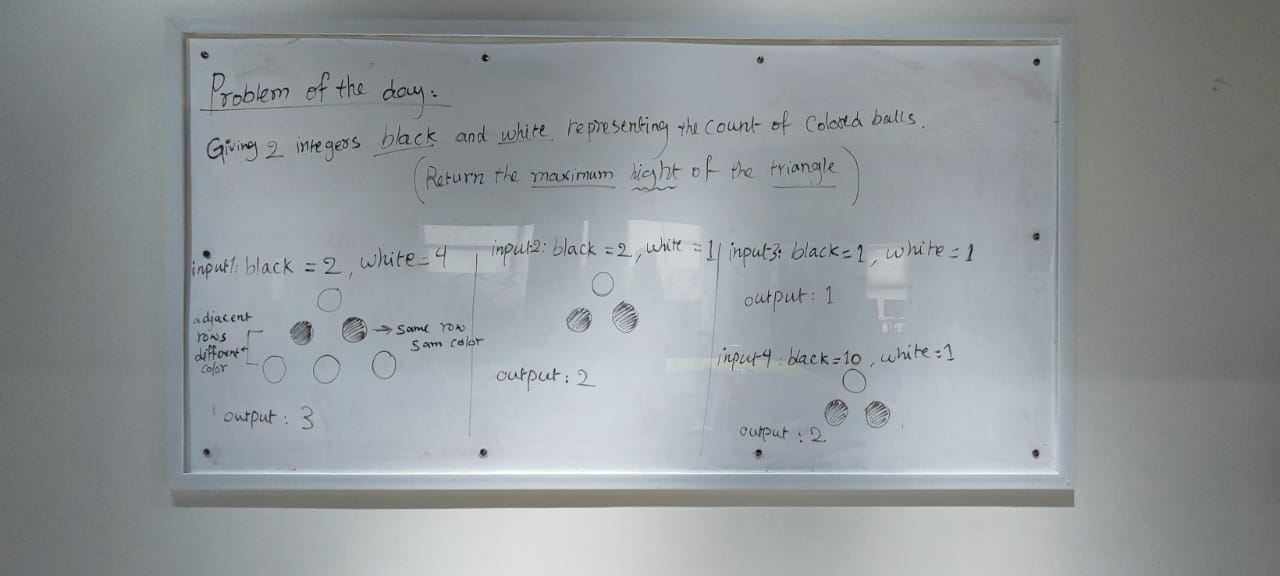 Problem of the day:
Giving 2 integers black and white representing the count of Colored balls.
(Return the maximum hight of the triangle)
input1: black = 2, white = 4
adjacent
rows
different
color
→ same row
Sam color
output: 3
input2: black = 2, white = 1
output: 2
input3: black = 1, white = 1
output: 1
input4: black = 10, white = 1
output: 2